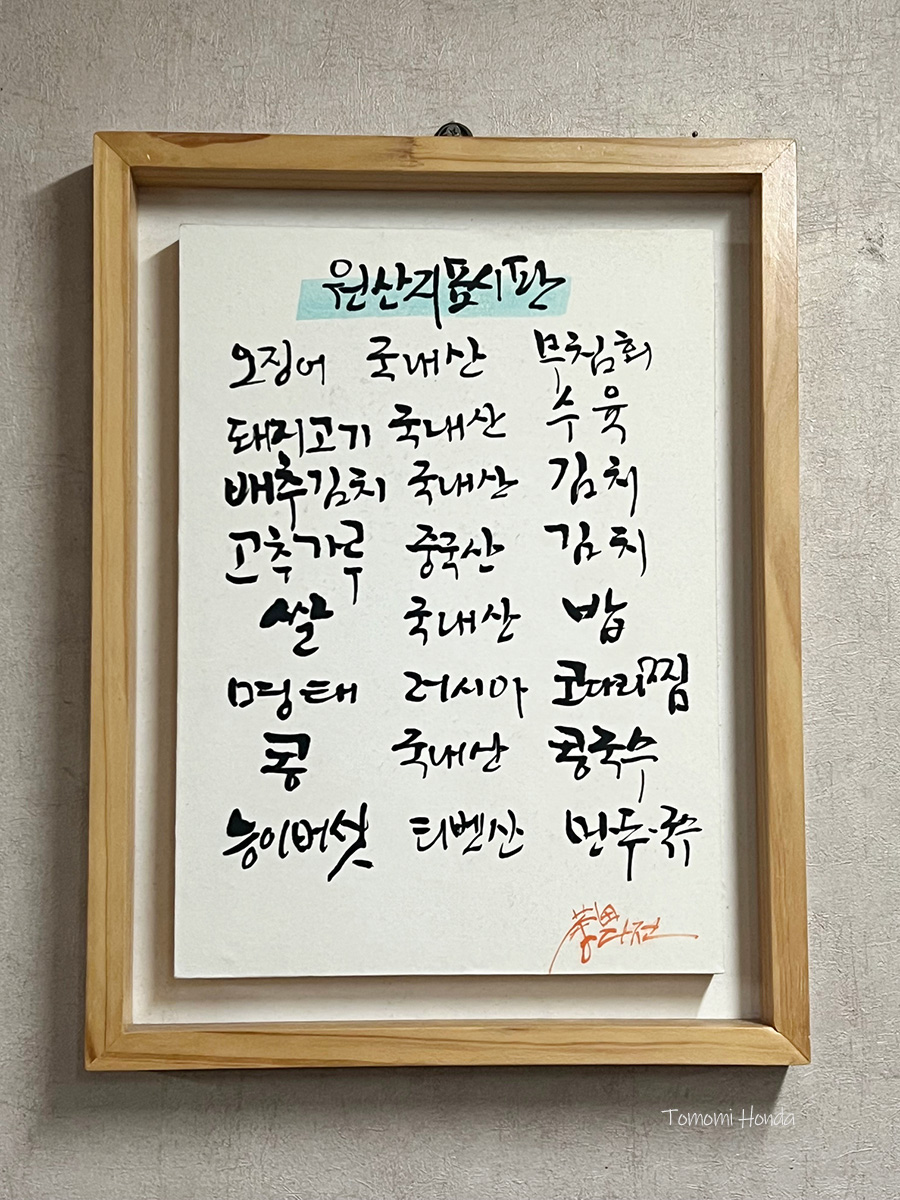 원산지표시판
오징어 국내산 무침회
돼지고기 국내산 수육
배추김치 국내산 김치
고추가루 중국산 김치
쌀 국내산 밥
명태 러시아 코다리찜
콩 국내산 콩국수
능이버섯 티벳산 만두·국수
Tomomi Honda